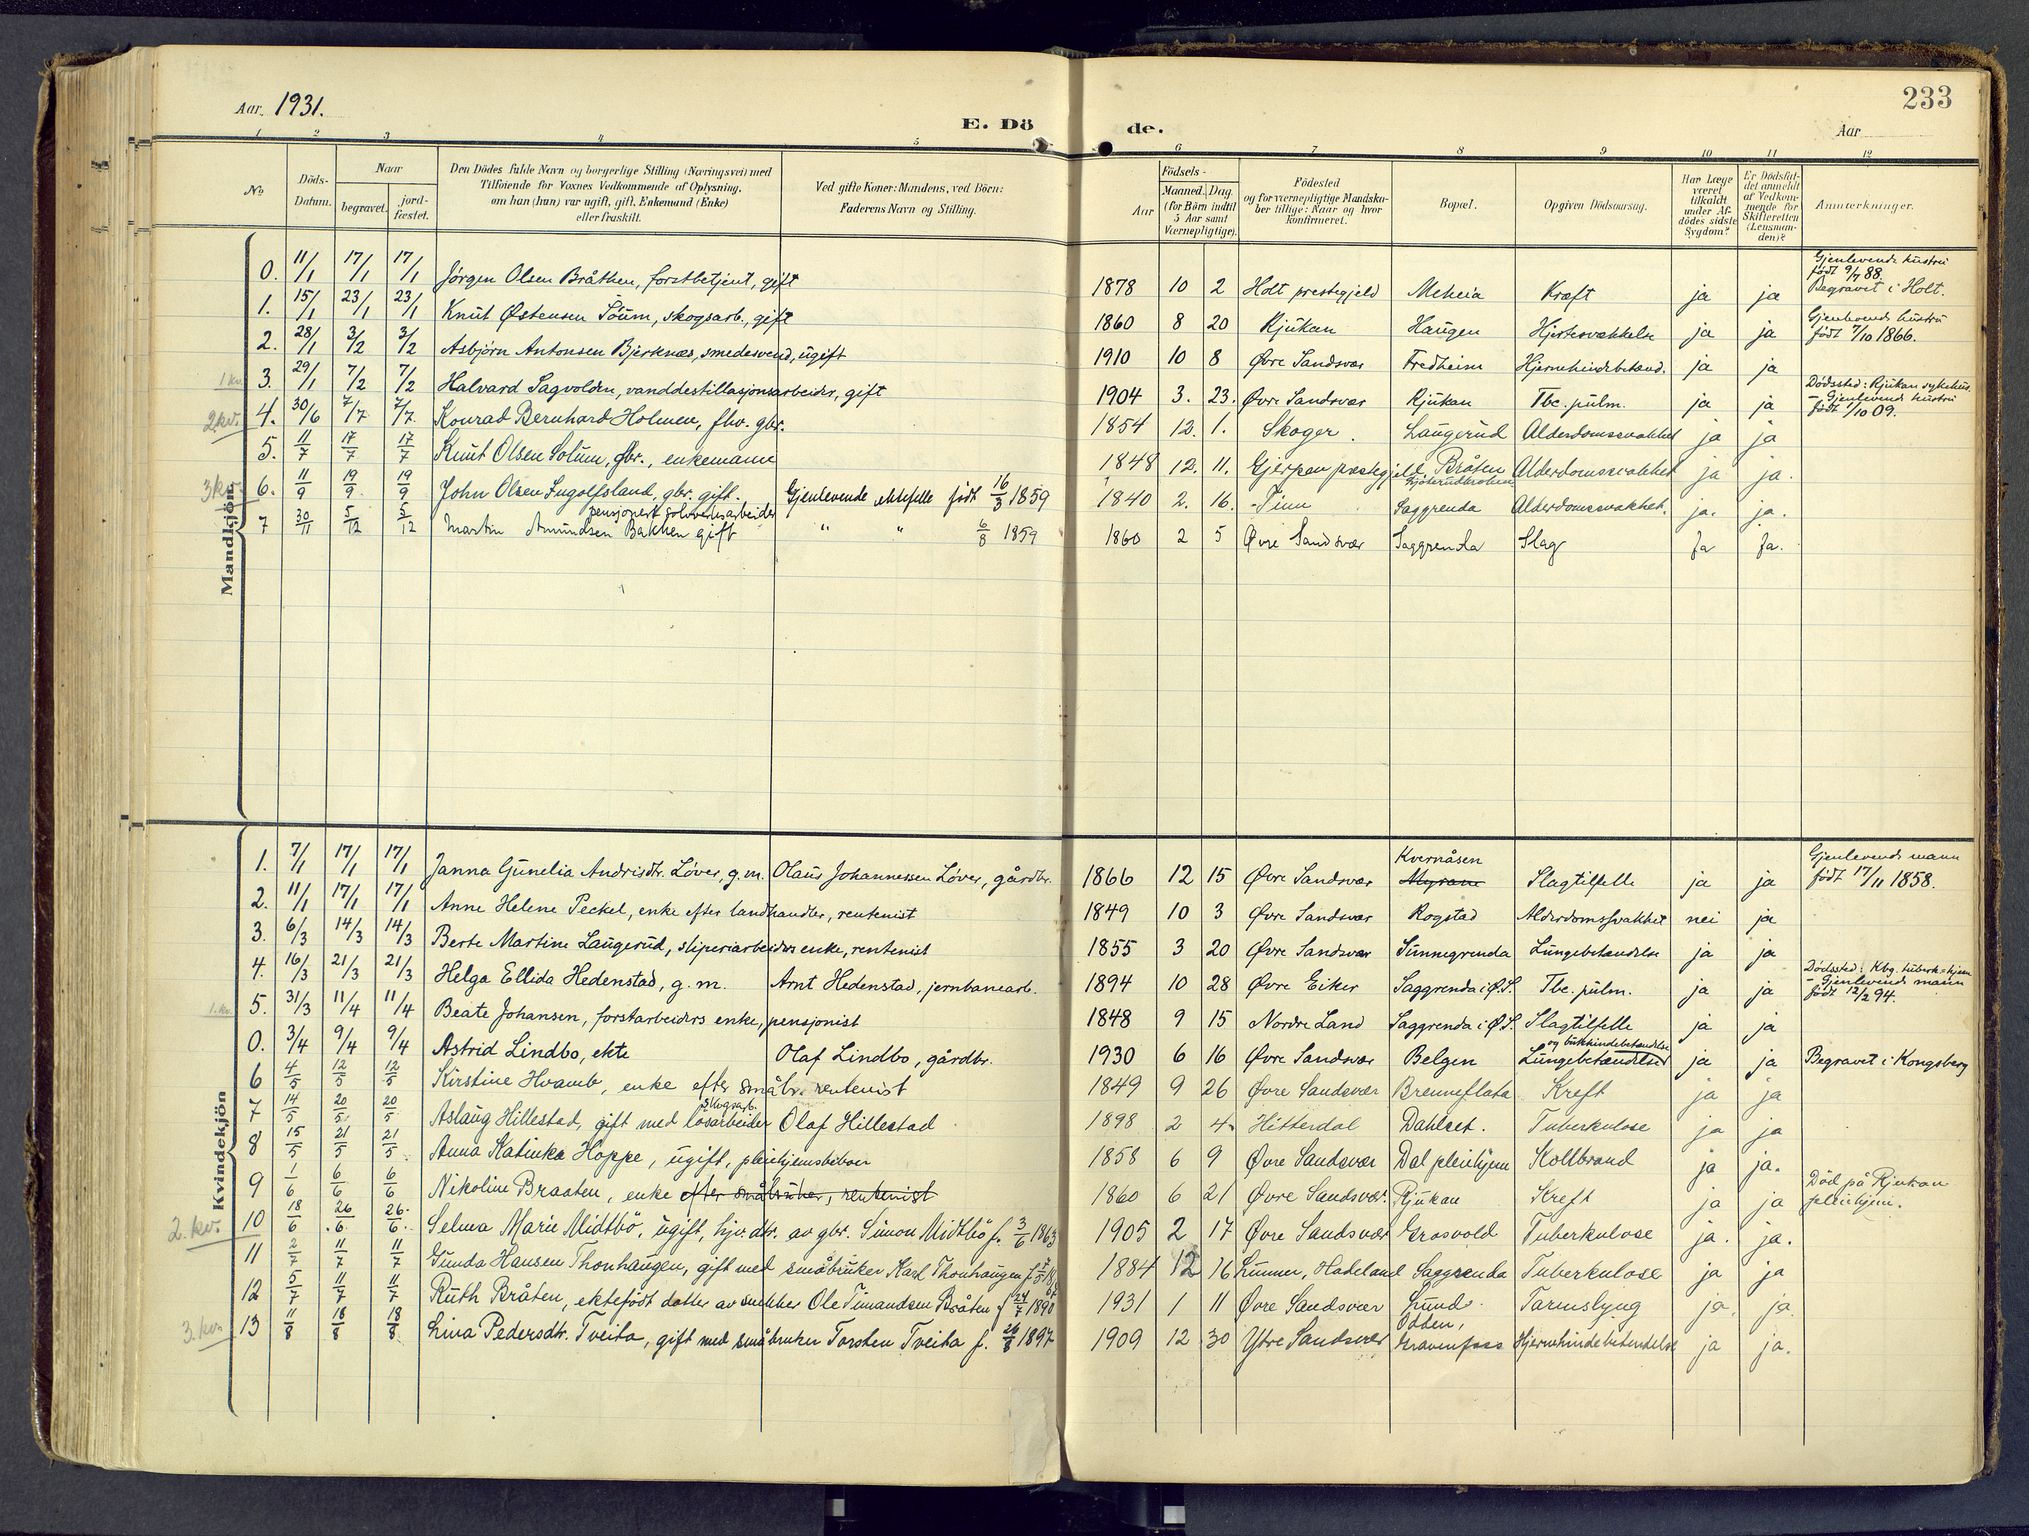 Aar. 1931.
E. Dö
de.
233
Aar
1 2 3 4 5 6 7 8 9 10 11 12
No
Döds-
Datum.
Naar
begravet.
jord-
fæstet.
Den Dödes fulde Navn og borgerlige Stilling (Næringsvei) med
Tilföiende for Voxnes Vedkommende af Oplysning,
om han (hun) var ugift, gift, Enkemand (Enke)
eller fraskilt.
Ved gifte Koner: Mandens, ved Börn:
Faderens Navn og Stilling.
Födsels-
Aar
Maaned. Dag.
(for Börn indtil
5 Aar samt
Værnepligtige).
Födested
og for værnepligtige Mandska-
ber tillige: Naar og hvor
konfirmeret.
Bopæl.
Opgiven Dödsaarsag.
Har Læge
været
tilkaldt
under Af-
dödes sidste
Sygdom?
Er Dödsfal-
det anmeldt
af Vedkom-
mende for
Skifteretten
(Lensman-
den)?
Anmærkninger.
Mandkjön
0. 11/1 17/1 17/1 Jörgen Olsen Bråthen, forstbetjent, gift 1878 10 2 Holt prestegjeld Meheia Kræft ja ja Gjenlevende hustru
født 9/7 88.
Begravet i Holt.
1. 15/1 23/1 23/1 Knut Østensen Söum, skogsarb., gift 1860 8 20 Rjukan Haugen Hjertesvækkelse ja ja Gjenlevende hustru
født 7/10 1866.
2. 28/1 3/2 3/2 Asbjörn Antonsen Bjerknæs, smedesvend, ugift 1910 10 8 Øvre Sandsvær Fredheim Hjernehindebetænd. ja ja
1 kv. 3. 29/1 7/2 7/2 Halvard Sagvolden, vanddestillasjonsarbeider, gift 1904 3. 23. Øvre Sandsvær Rjukan Tbc. pulm. ja ja Dödssted: Rjukan sykehus.
- Gjenlevende hustru
født 1/10 09.
2.kv. 4. 30/6 7/7 7/7 Konrad Bernhard Holmen, fhv. gbr. 1854 12. 1. Skoger. Laugerud Alderdomssvakhet ja ja
5. 11/7 17/7 17/7 Knut Olsen Solum, gbr., enkemann 1848 12. 11. Gjerpen prestegjeld Bråten Alderdomssvakhet ja ja.
3 kv. 6. 11/9 19/9 19/9 John Olsen Ingolfsland, gbr. gift. Gjenlevende ektefelle født 16/3 1859 1840 2. 16. Tinn Saggrenda Alderdomssvakhet. ja. ja.
pensjonert sølvverksarbeider
7 30/11 5/12 5/12 Martin Amundsen Bakken gift " " 6/8 1859 1860 2 5 Øvre Sandsvær Saggrenda Slag Ja Ja.
Kvindekjön
1. 7/1 17/1 17/1 Janna Gunelia Andrisdtr. Løver, g. m. Olaus Johannessen Løver, gårdbr. 1866 12 15 Øvre Sandsvær Kvernåsen Myrane Slagtilfelle ja ja Gjenlevende mann
født 17/11 1858.
2. 11/1 17/1 17/1 Anne Helene Peckel, enke efter landhandler, rentenist 1849 10 3 Øvre Sandsvær Rogstad Alderdomssvakhet nei ja
3. 6/3 14/3 14/3 Berte Martine Laugerud, sliperiarbeiders enke, rentenist 1855 3 20 Øvre Sandsvær Sunnegrenda Lungebetændelse ja ja
4. 16/3 21/3 21/3 Helga Ellida Hedenstad, g. m. Arnt Hedenstad, jernbanearb. 1894 10 28 Øvre Eiker Saggrenda i Ø.S. Tbc. pulm. ja ja Dödssted: Kbg. tuberk.hjem
- Gjenlevende mann
født 12/2 94.
1. kv. 5. 31/3 11/4 11/4 Beate Johansen, forstarbeiders enke, pensjonist 1848 9 15 Nordre Land Saggrenda i Ø.S. Slagtilfelle ja ja
0. 3/4 9/4 9/4 Astrid Lindbo, ekte Olaf Lindbo, gårdbr. 1930 6 16 Øvre Sandsvær Belgen Lungebetændelse og bukhindebetændelse ja ja Begravet i Kongsberg
6 4/5 12/5 12/5 Kirstine Hvamb, enke efter småbr. rentenist 1849 9 26 Øvre Sandsvær Brenneflata Kreft ja ja
skogsarb.
7 14/5 20/5 20/5 Aslaug Hillestad, gift med løsarbeider Olaf Hillestad 1898 2 4 Hitterdal Dahlset. Tuberkulose ja ja
8 15/5 21/5 21/5 Anna Katinka Hoppe, ugift, pleiehjemsbeboer 1858 6 9 Øvre Sandsvær Dal pleiehjem Koldbrand ja ja.
9 1/6 6/6 6/6 Nikoline Braaten, enke efter småbruker, rentenist 1860 6 21 Øvre Sandsvær. Rjukan Kreft ja ja Død på Rjukan
pleiehjem.
2. kv. 10 18/6 26/6 26/6 Selma Marie Midtbö, ugift, hjv. dtr. av gbr. Simon Midtbö f. 3/6 1863 1905 2 17 Øvre Sandsvær Grosvold Tuberkulose ja. ja.
11 2/7 11/7 11/7 Gunda Hansen Thonhaugen, gift med småbruker Karl Thonhaugen 1884 12 16 Lunner, Hadeland Saggrenda Tuberkulose ja ja
12 5/7 11/7 11/7 Ruth Bråten, ektefödt datter av snekker Ole Timandsen Bråten f 24/7 1890 1931 1 11 Øvre Sandsvær Lunds. Tarmslyng ja. ja.
3. kv. 13 11/8 18/8 18/8 Lina Pedersdtr. Tveita, gift med småbruker Torsten Tveita f. 26/8 1897 1909 12 30 Ytre Sandsvær Odden,
Gravenfoss Hjernehindebetendelse ja ja.